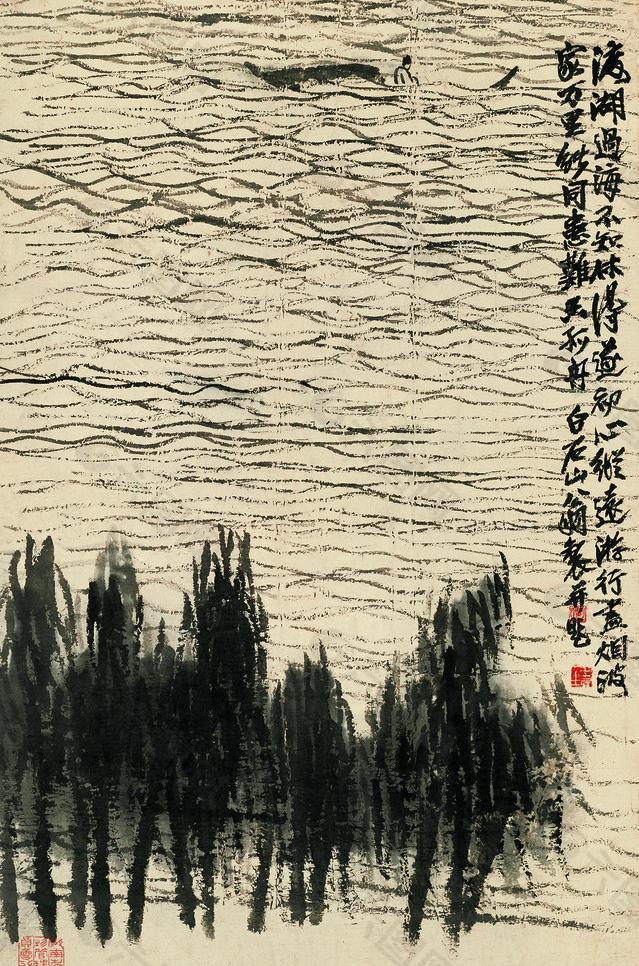 渡湖過海不知休得遂初心縱遠游行盡烟波
家万里能同患難與孤舟白石山翁製并